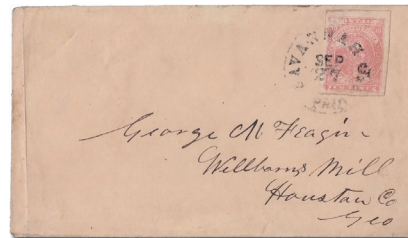 SAVANNAH Ga
SEP
PAID
George M Feagin
Wellborns Mill
Houstan Co
Geo